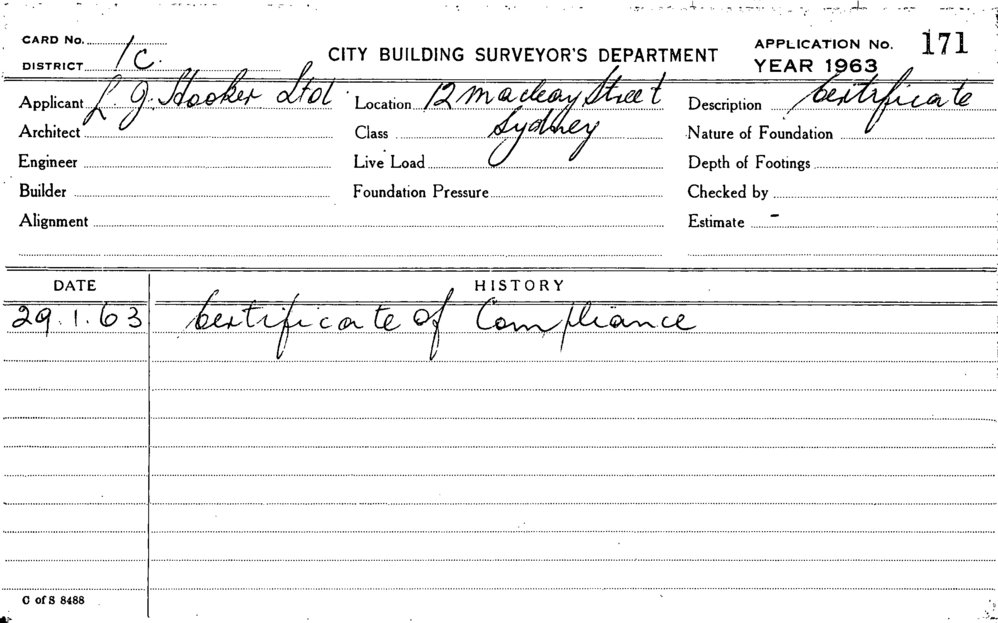 CARD No.
DISTRICT 1C.
CITY BUILDING SURVEYOR'S DEPARTMENT
APPLICATION No. 171
YEAR 1963
Applicant L. J. Hooker Ltd Location 12 Macleay Street Description Certificate
Architect Class Sydney Nature of Foundation
Engineer Live Load Depth of Footings
Builder Foundation Pressure Checked by
Alignment Estimate -
DATE HISTORY
29.1.63 Certificate of Compliance
C of S 8488